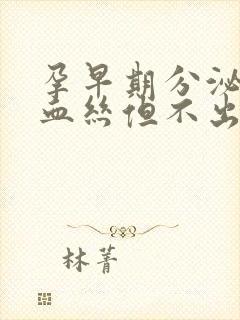 孕早期分泌
血丝但不出
林菁